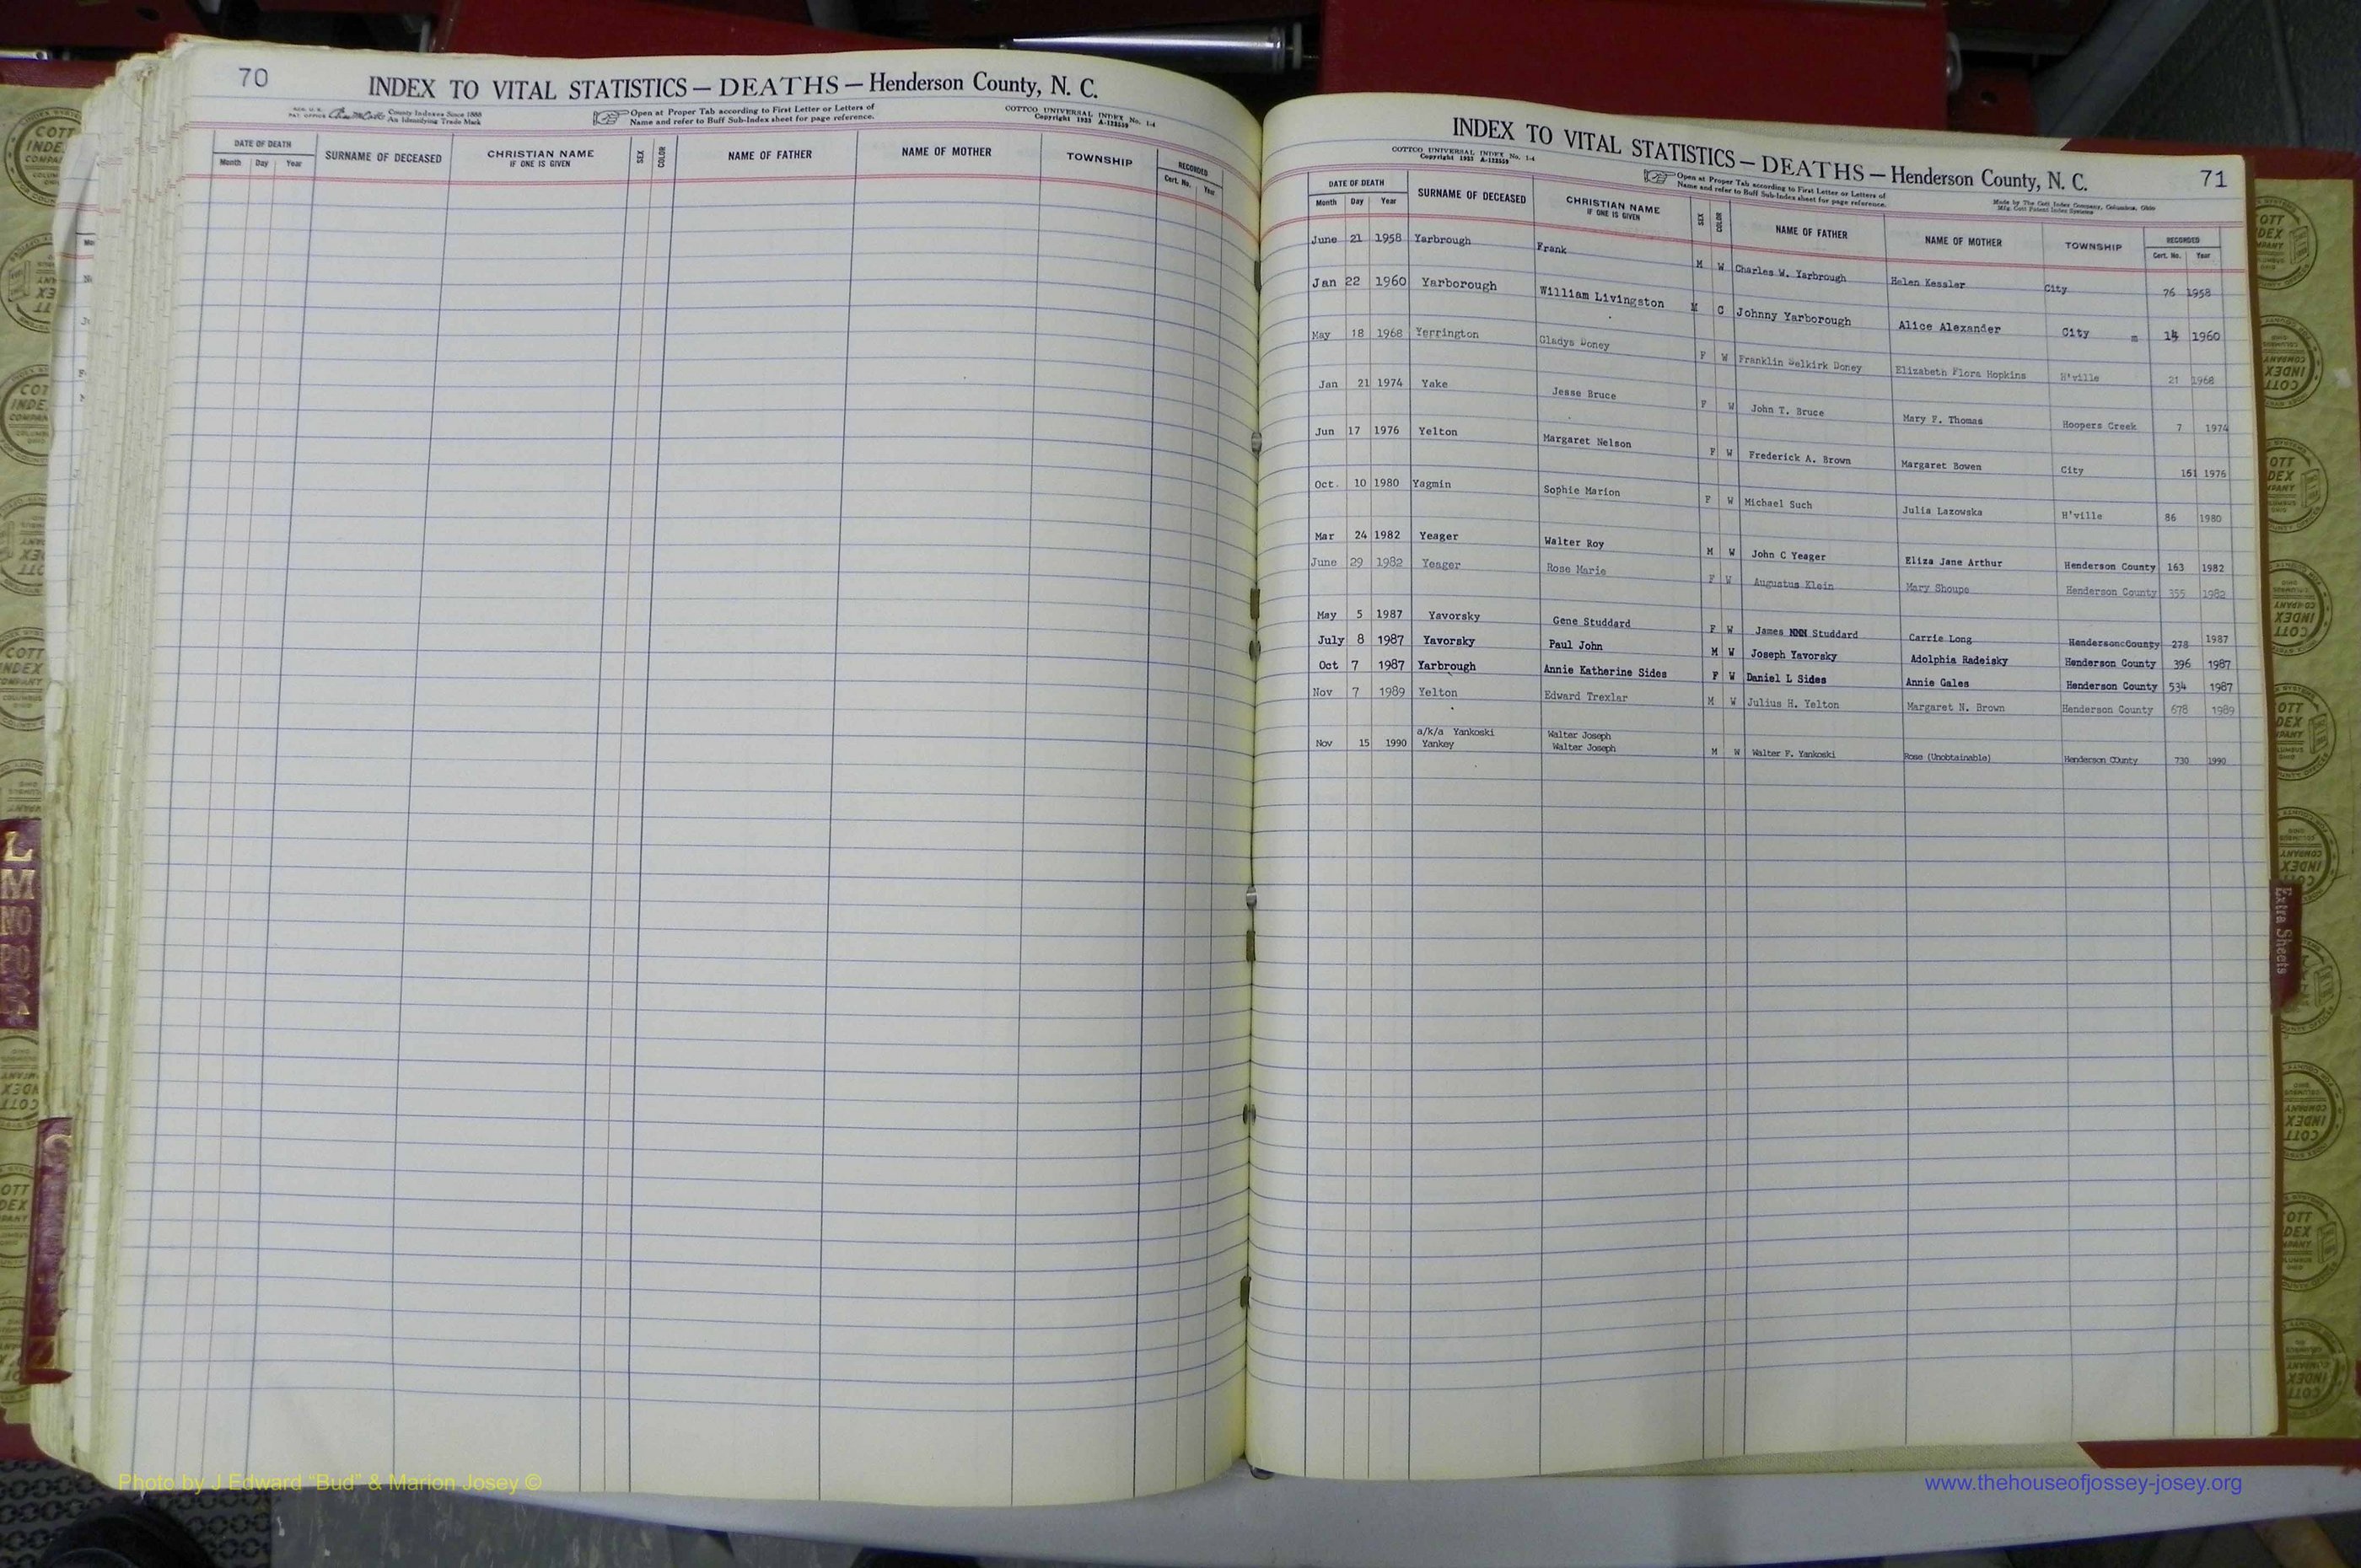 70
INDEX TO VITAL STATISTICS — DEATHS — Henderson County, N. C.
County Indexes Since 1888
An Identifying Trade Mark
Open at Proper Tab according to First Letter or Letters of
Name and refer to Buff Sub-Index sheet for page reference.
COTTCO UNIVERSAL INDEX No. 1-4
Copyright 1933 A-122559
DATE OF DEATH
Month Day Year
SURNAME OF DECEASED
CHRISTIAN NAME
IF ONE IS GIVEN
SEX
COLOR
NAME OF FATHER
NAME OF MOTHER
TOWNSHIP
RECORDED
Cert. No. Year
INDEX TO VITAL STATISTICS — DEATHS — Henderson County, N. C.
71
COTTCO UNIVERSAL INDEX No. 1-4
Copyright 1933 A-122559
Open at Proper Tab according to First Letter or Letters of
Name and refer to Buff Sub-Index sheet for page reference.
Made by The Cott Index Company, Columbus, Ohio
Mfg. Cott Patent Index Systems
DATE OF DEATH
Month Day Year
SURNAME OF DECEASED
CHRISTIAN NAME
IF ONE IS GIVEN
SEX
COLOR
NAME OF FATHER
NAME OF MOTHER
TOWNSHIP
RECORDED
Cert. No. Year
June 21 1958 Yarbrough Frank M W Charles W. Yarbrough Helen Kessler City 76 1958
Jan 22 1960 Yarborough William Livingston M C Johnny Yarborough Alice Alexander City m 14 1960
May 18 1968 Yerrington Gladys Doney F W Franklin Selkirk Doney Elizabeth Flora Hopkins H'ville 21 1968
Jan 21 1974 Yake Jesse Bruce F W John T. Bruce Mary F. Thomas Hoopers Creek 7 1974
Jun 17 1976 Yelton Margaret Nelson F W Frederick A. Brown Margaret Bowen City 161 1976
Oct. 10 1980 Yagmin Sophie Marion F W Michael Such Julia Lazowska H'ville 86 1980
Mar 24 1982 Yeager Walter Roy M W John C Yeager Eliza Jane Arthur Henderson County 163 1982
June 29 1982 Yeager Rose Marie F W Augustus Klein Mary Shoupe Henderson County 355 1982
May 5 1987 Yavorsky Gene Studdard F W James NMN Studdard Carrie Long HendersoncCounty 278 1987
July 8 1987 Yavorsky Paul John M W Joseph Yavorsky Adolphia Radeisky Henderson County 396 1987
Oct 7 1987 Yarbrough Annie Katherine Sides F W Daniel L Sides Annie Gales Henderson County 534 1987
Nov 7 1989 Yelton Edward Trexlar M W Julius H. Yelton Margaret N. Brown Henderson County 678 1989
a/k/a Yankoski Walter Joseph
Nov 15 1990 Yankey Walter Joseph M W Walter F. Yankoski Rose (Unobtainable) Henderson COunty 730 1990
Extra Sheets
L
M
NO
Photo by J Edward “Bud” & Marion Josey ©
www.thehouseofjossey-josey.org